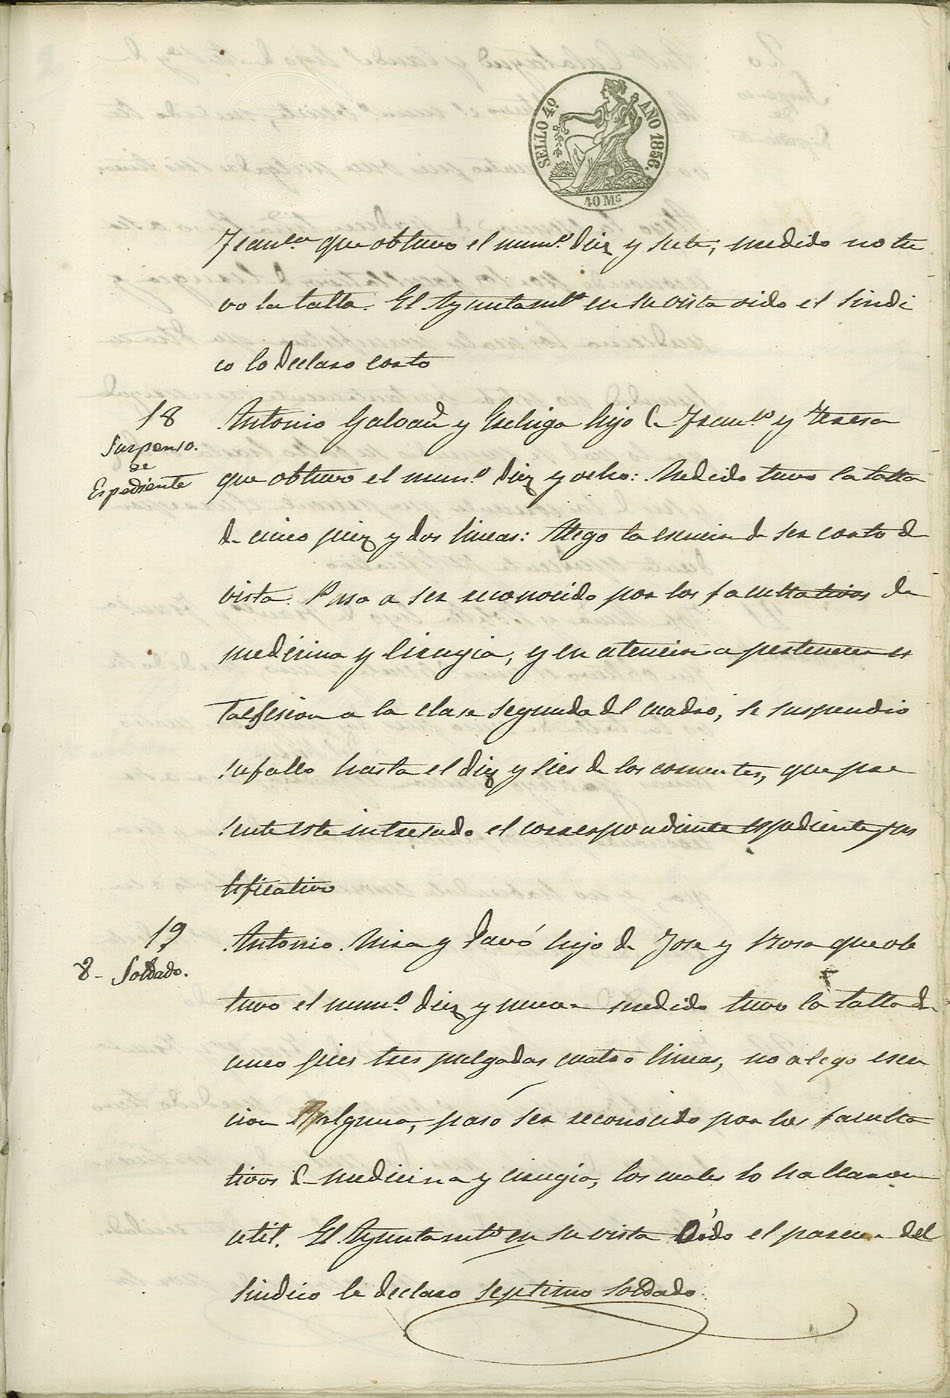 SELLO 4º AÑO 1856.
40 Ms
que obtuvo el numº diez y siete, medido no tu
vo la talla. El Ayuntamto en su vista oido el Sindi
co lo declaro corto
18
Suspenso.
de
Espediente
Antonio Galvañ y hijo de Franco y Teresa
que obtuvo el numº diez y ocho: Medido tuvo la talla
de cinco pies y dos lineas: Alego la esencion de ser corto de
vista. Paso a ser reconocido por los facultativos de
medicina y cirugia, y en atencion a pertenecer es
ta lesion a la clase segunda del cuadro, se suspendio
su fallo hasta el diez y seis de los corrientes, que pre
sente este interesado el correspondiente espediente jus
tificativo
19
8- Soldado.
Antonio Mira y Pavó hijo de Jose y Rosa que ob
tuvo el numº diez y nueve medido tuvo la talla de
cinco pies tres pulgadas cuatro lineas, no alego esen
cion alguna, pasó ser reconocido por los faculta
tivos de medicina y cirugia, los cuales lo hallaron
util. El Ayuntamto en su vista Oido el parecer del
Sindico le declaro septimo soldado